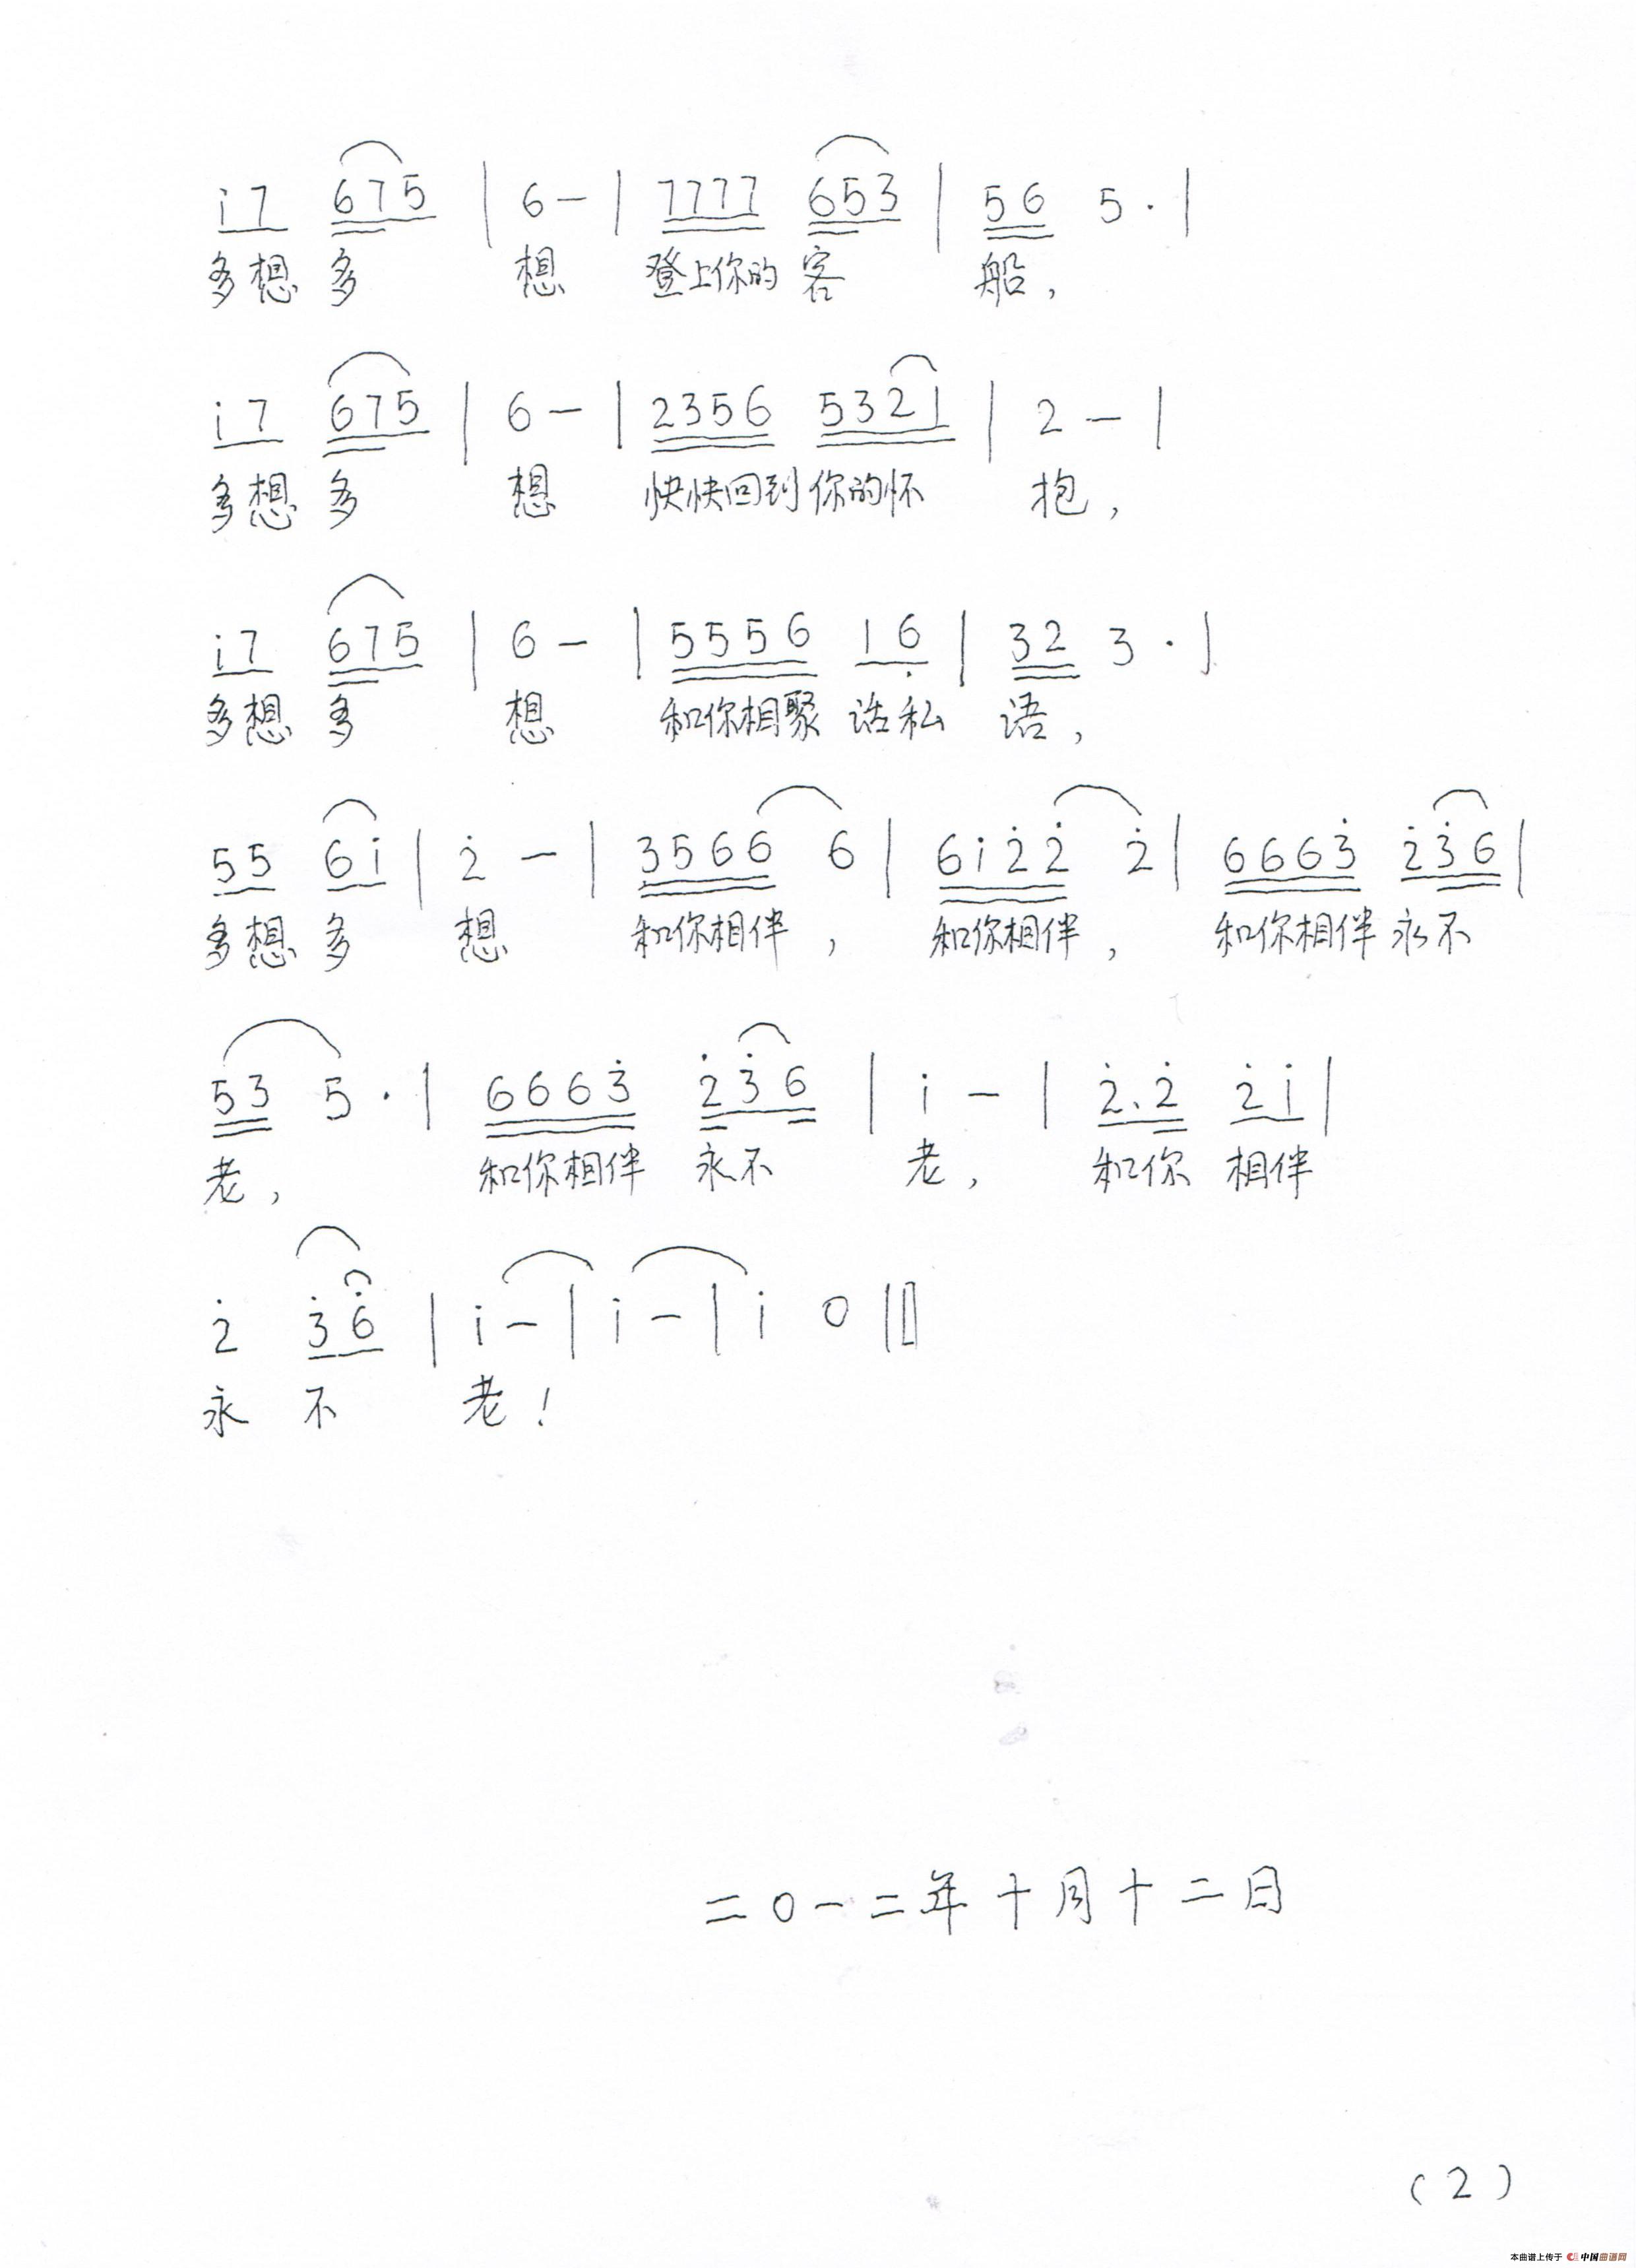 i7 675 | 6 - | 7777 653 | 56 5 · |
多想 多 想 登上你的 客 船，
i7 675 | 6 - | 2356 5321 | 2 - |
多想 多 想 快快回到 你的怀 抱，
i7 675 | 6 - | 5556 16̣ | 32 3 · |
多想 多 想 和你相聚 话私 语，
55 6i | 2̇ - | 3566 6 | 6i2̇2̇ 2̇ | 6663̇ 2̇3̇6 |
多想 多 想 和你相伴， 和你相伴， 和你相伴 永不
53 5 · | 6663̇ 2̇3̇6 | i - | 2̇.2̇ 2̇i |
老， 和你相伴 永不 老， 和你 相伴
2̇ 3̇6̇ | i - | i - | i 0 ||
永 不 老！
二〇一二年十月十二日
(2)
本曲谱上传于 中国曲谱网